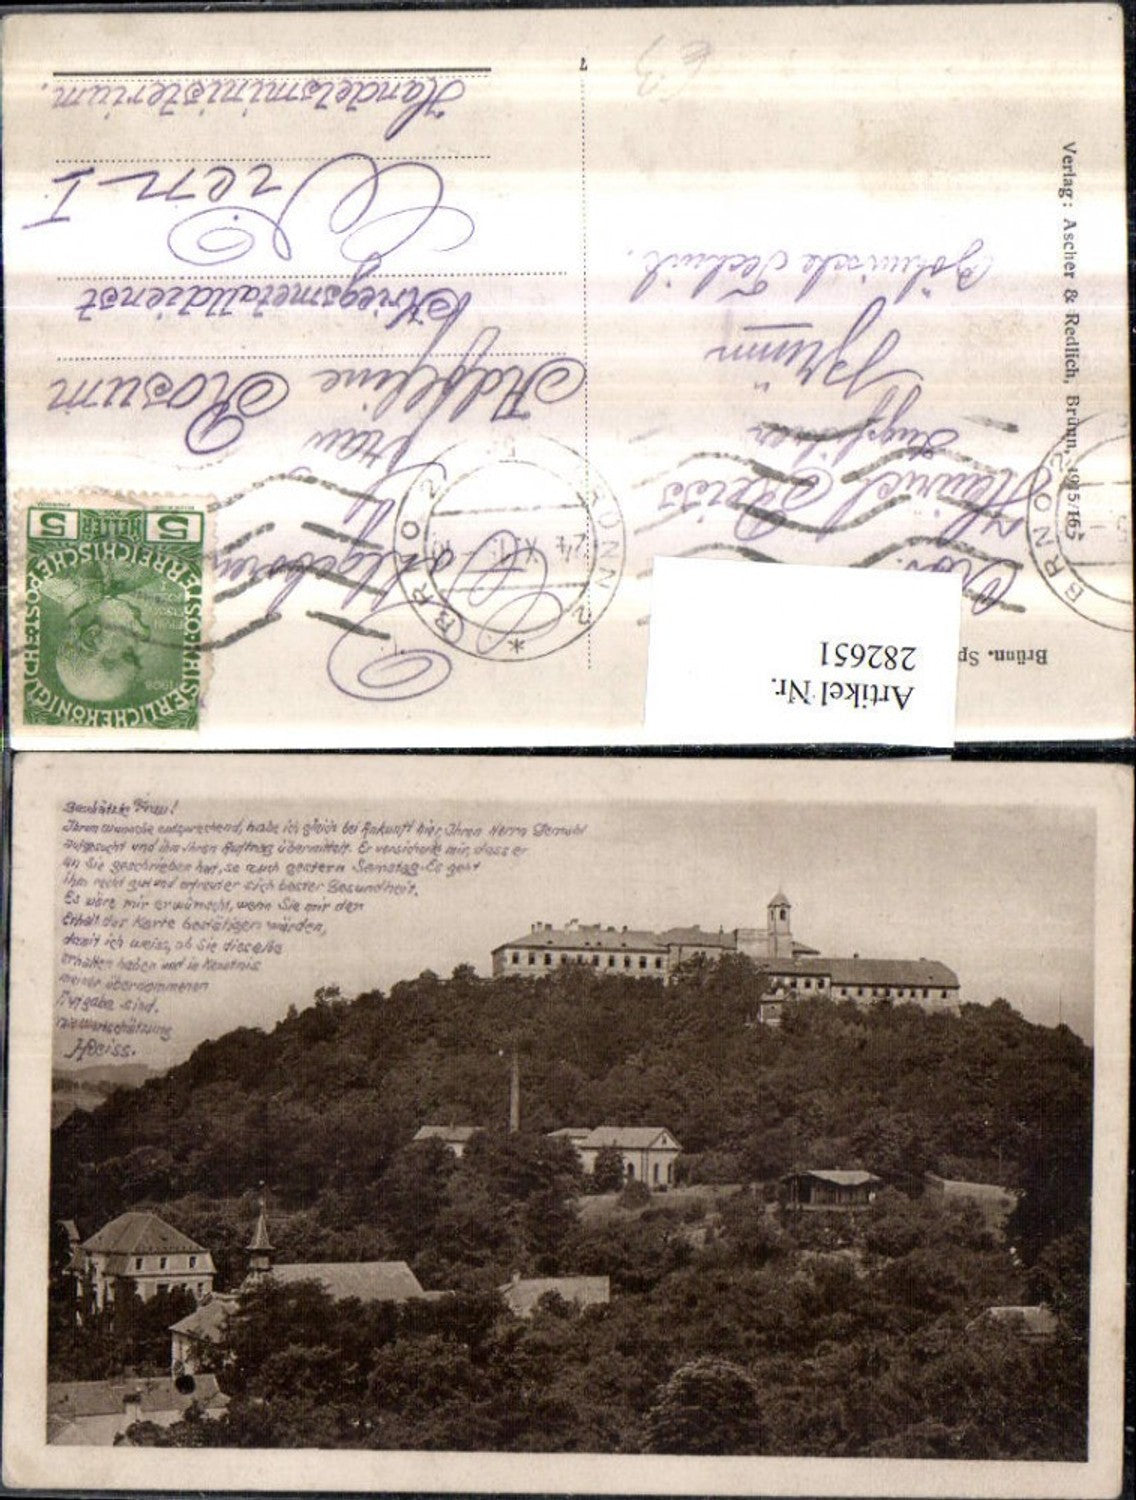 Brünn. Sp
Artikel Nr.
282651
Heinrich Reiss
Zugsführer
Brünn
Böhmische Technik.
Verlag: Ascher & Redlich, Brünn, 1915/16
7
BRNO 2
BRÜNN 2
24
KAISERLICHEKÖNIGLICHE·POST·ÖSTERREICHISCHE
1908
5 HELLER 5
Hochwohlgeboren
Frau
Adolfine Rosum
Kriegsmetalldienst
Wien I
Handelsministerium.
Geschätzte Frau!
Ihrem Wunsche entsprechend, habe ich gleich bei Ankunft hier, Ihren Herrn Gemahl
aufgesucht und ihm Ihren Auftrag übermittelt. Er versicherte mir, dass er
an Sie geschrieben hat, so auch gestern Samstag. Es geht
ihm recht gut und erfreut er sich bester Gesundheit.
Es wäre mir erwünscht, wenn Sie mir den
Erhalt der Karte bestätigen würden,
damit ich weiss, ob Sie dieselbe
erhalten haben und in Kenntnis
meiner übernommenen
Aufgabe sind.
Hochwertschätzung
HReiss.